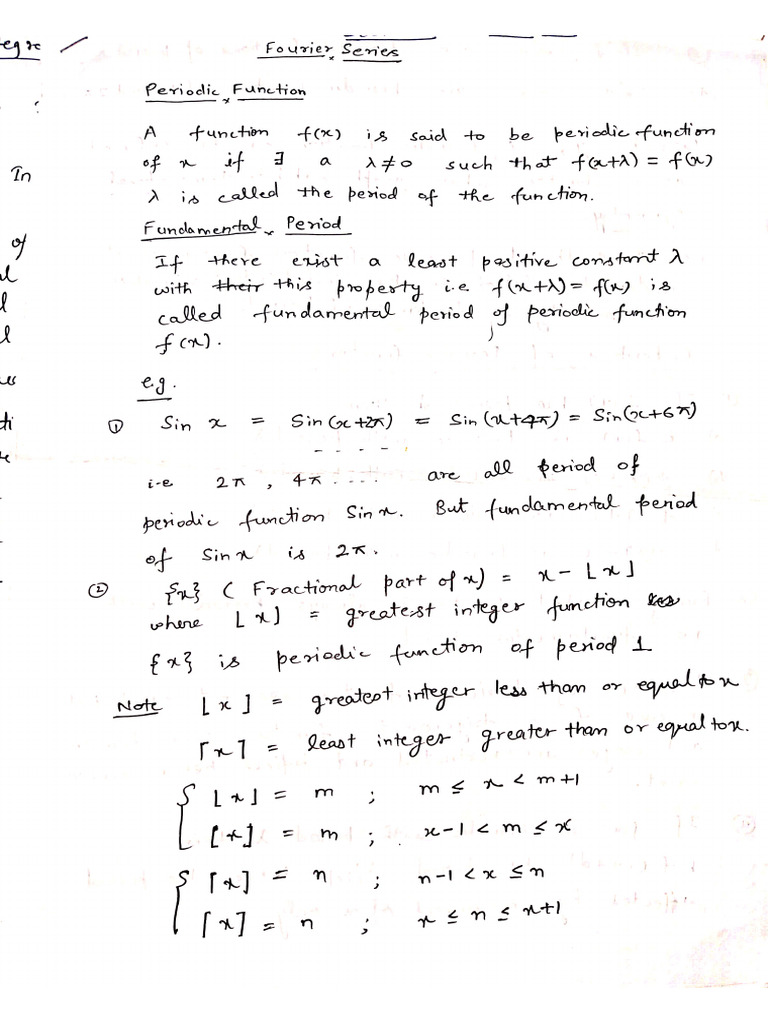 Fourier Series
Periodic Function
A function f(x) is said to be periodic function
of x if ∃ a λ≠0 such that f(x+λ) = f(x)
λ is called the period of the function.
Fundamental Period
If there exist a least positive constant λ
with their this property i.e f(x+λ) = f(x) is
called fundamental period of periodic function
f(x).
e.g.
① Sin x = Sin(x+2π) = Sin(x+4π) = Sin(x+6π)
- - - -
i-e 2π, 4π .... are all period of
periodic function Sinx. But fundamental period
of Sinx is 2π.
② {x} ( Fractional part of x) = x - ⌊x⌋
where ⌊x⌋ = greatest integer function
{x} is periodic function of period 1
Note ⌊x⌋ = greatest integer less than or equal to x
⌈x⌉ = least integer greater than or equal to x.
⌊x⌋ = m ; m ≤ x < m+1
⌊x⌋ = m ; x-1 < m ≤ x
⌈x⌉ = n ; n-1 < x ≤ n
⌈x⌉ = n ; x ≤ n ≤ x+1
In
of